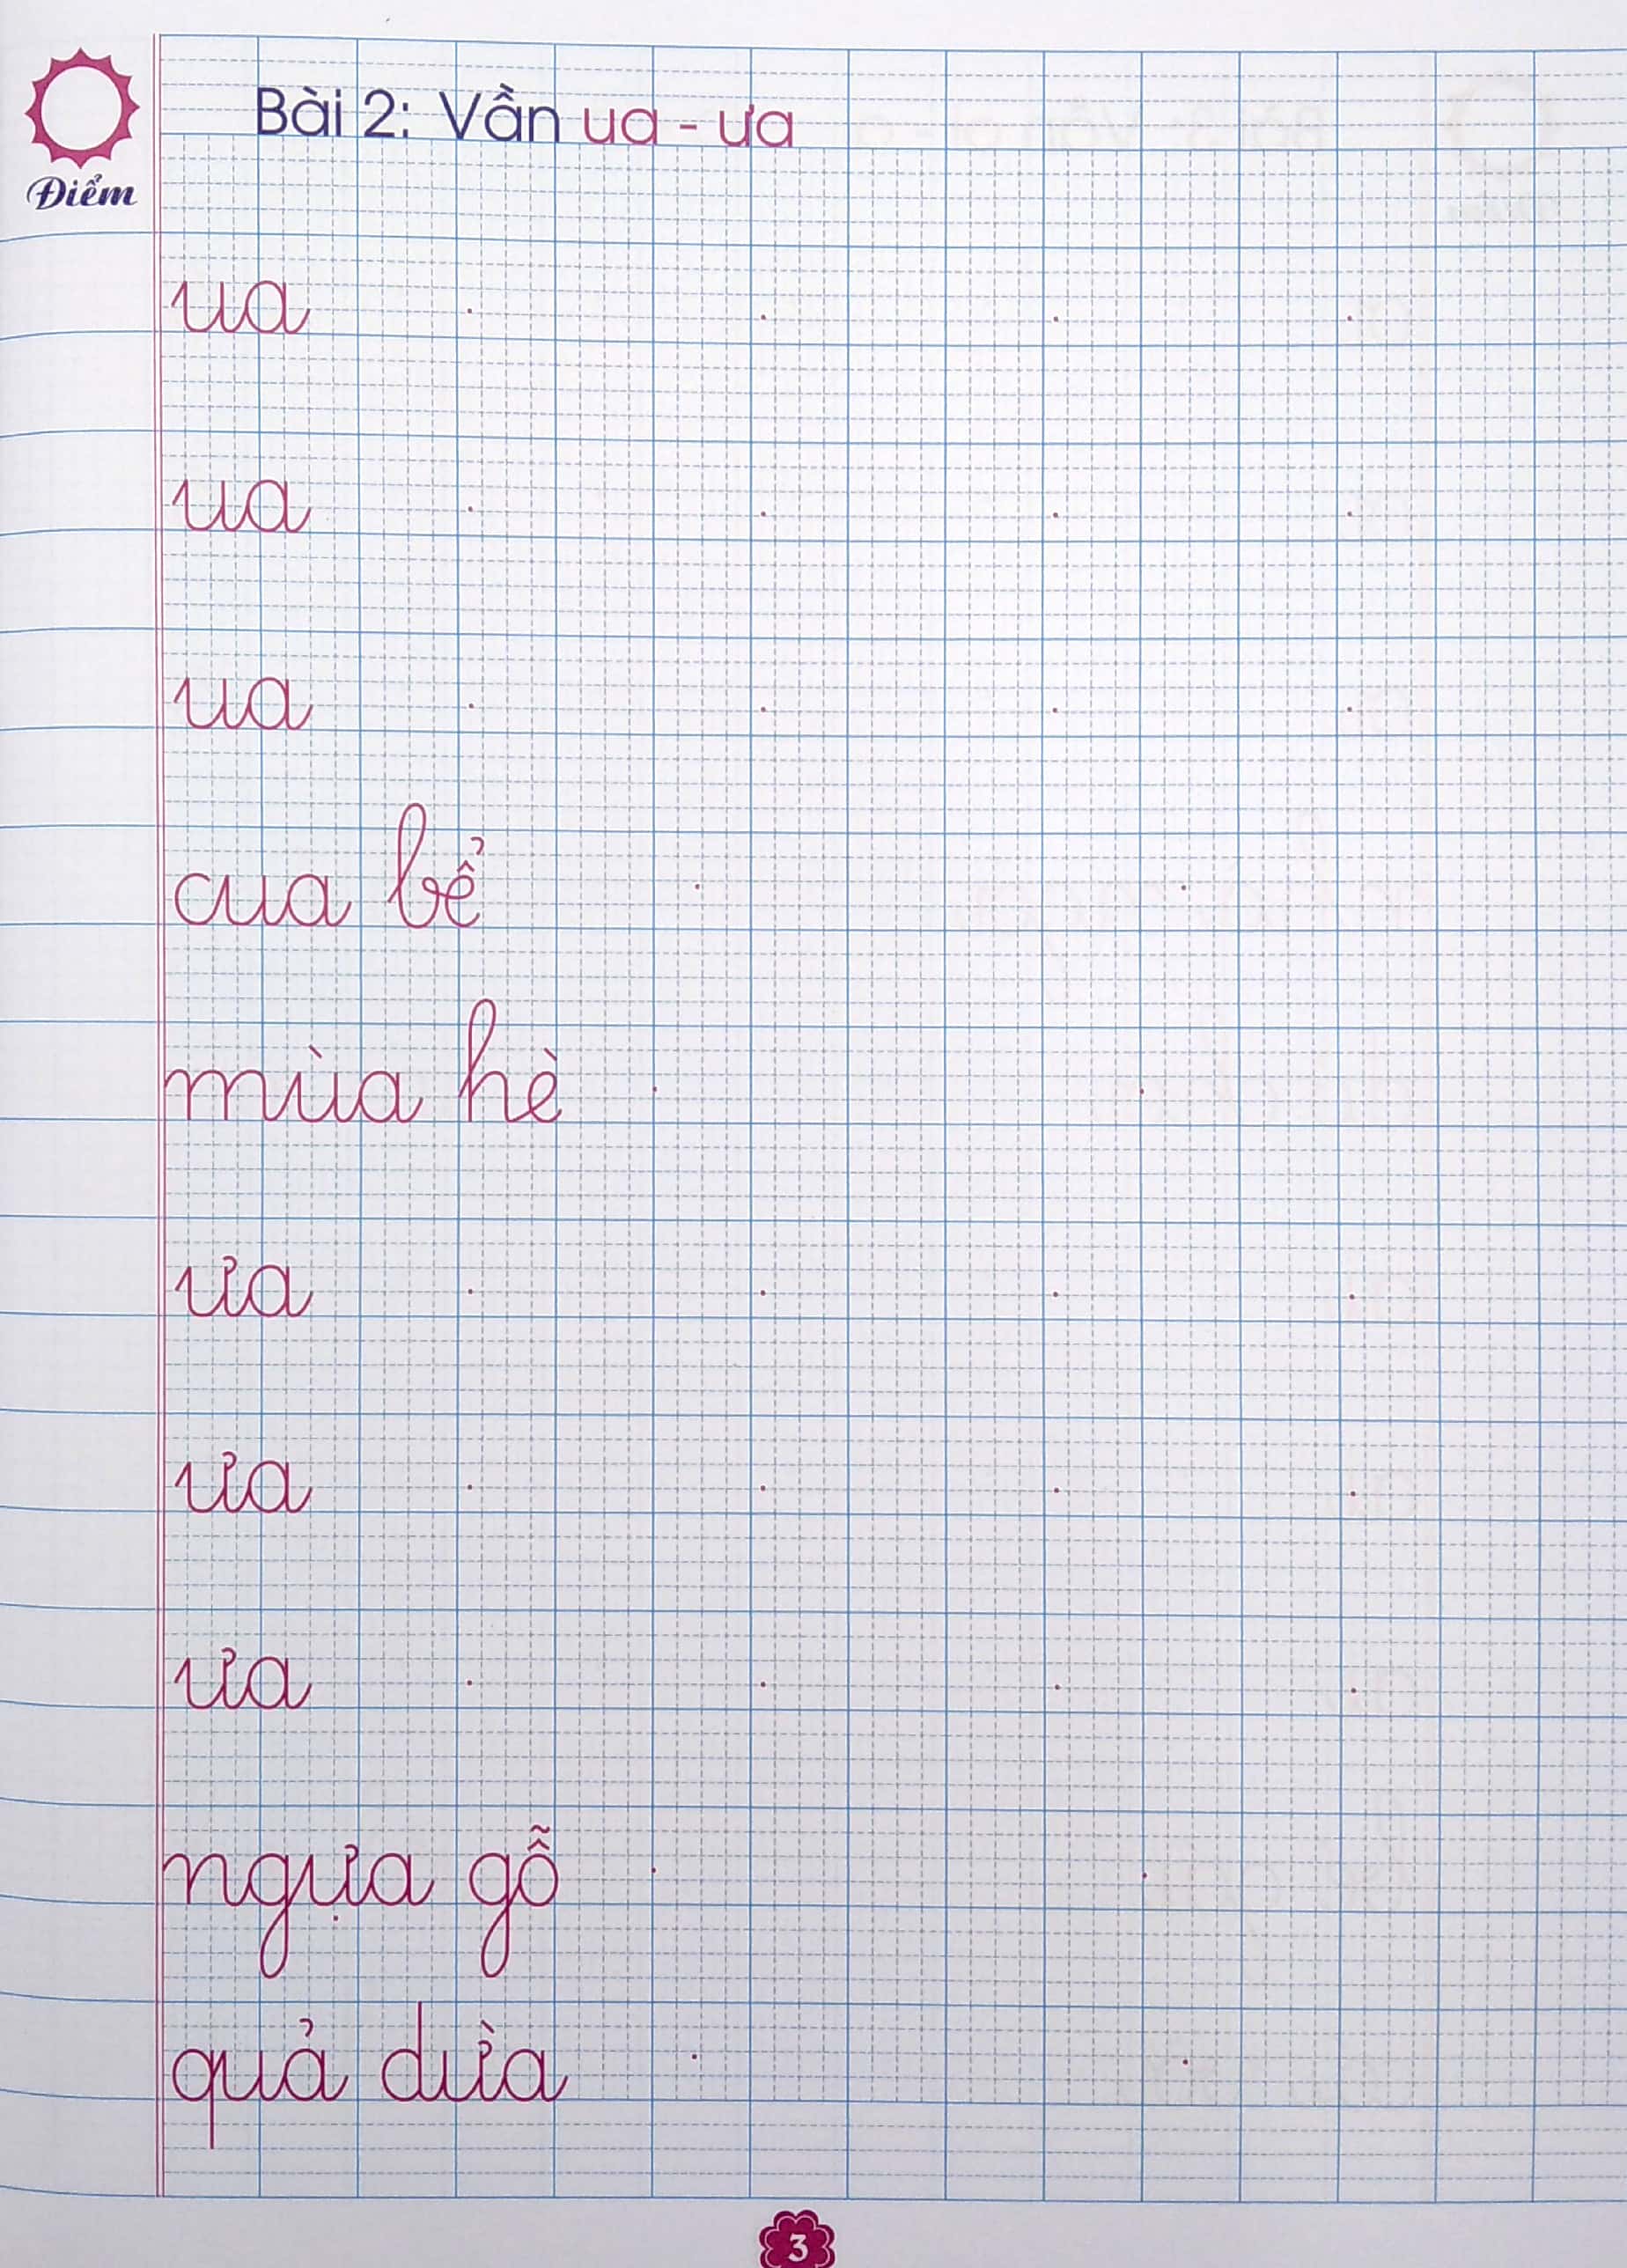 Bài 2: Vần ua - ưa
Điểm
ua
ua
ua
cua bể
mùa hè
ưa
ưa
ưa
ngựa gỗ
quả dừa
3